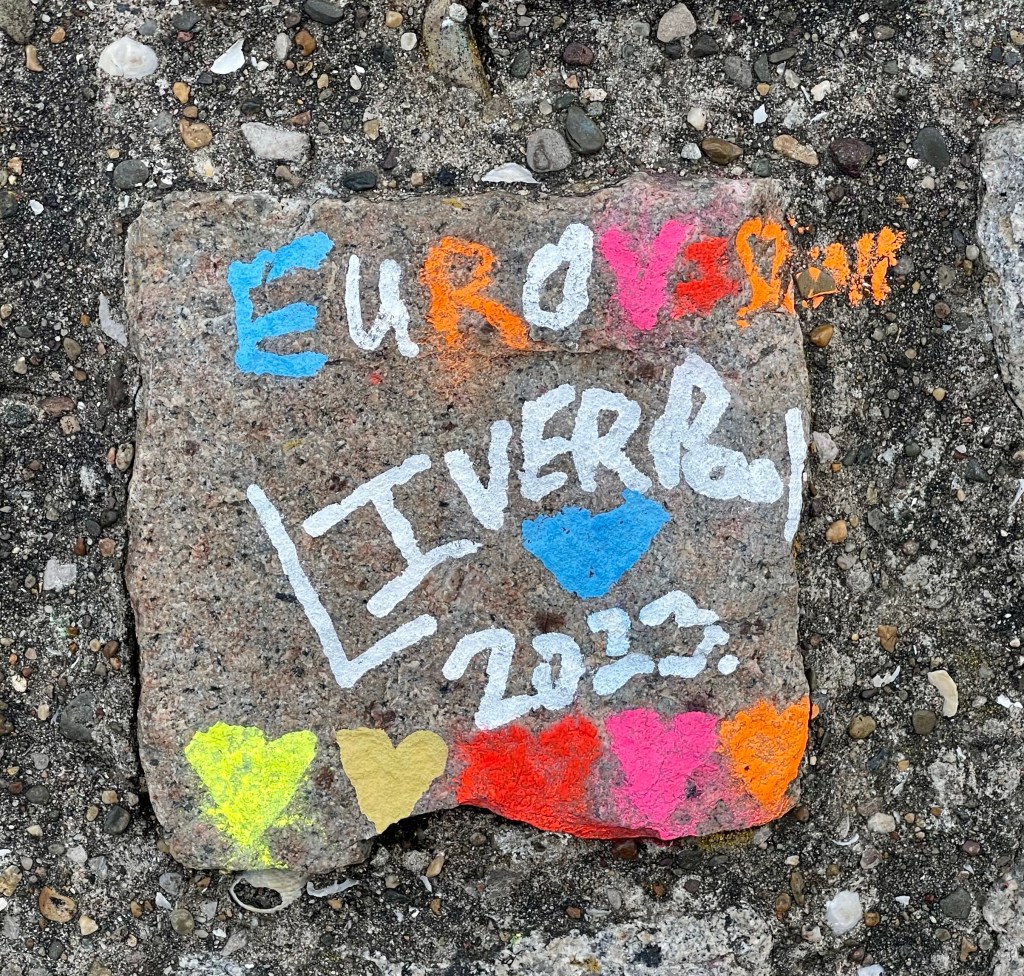 EUROVISION
LIVERPOOL
2023.